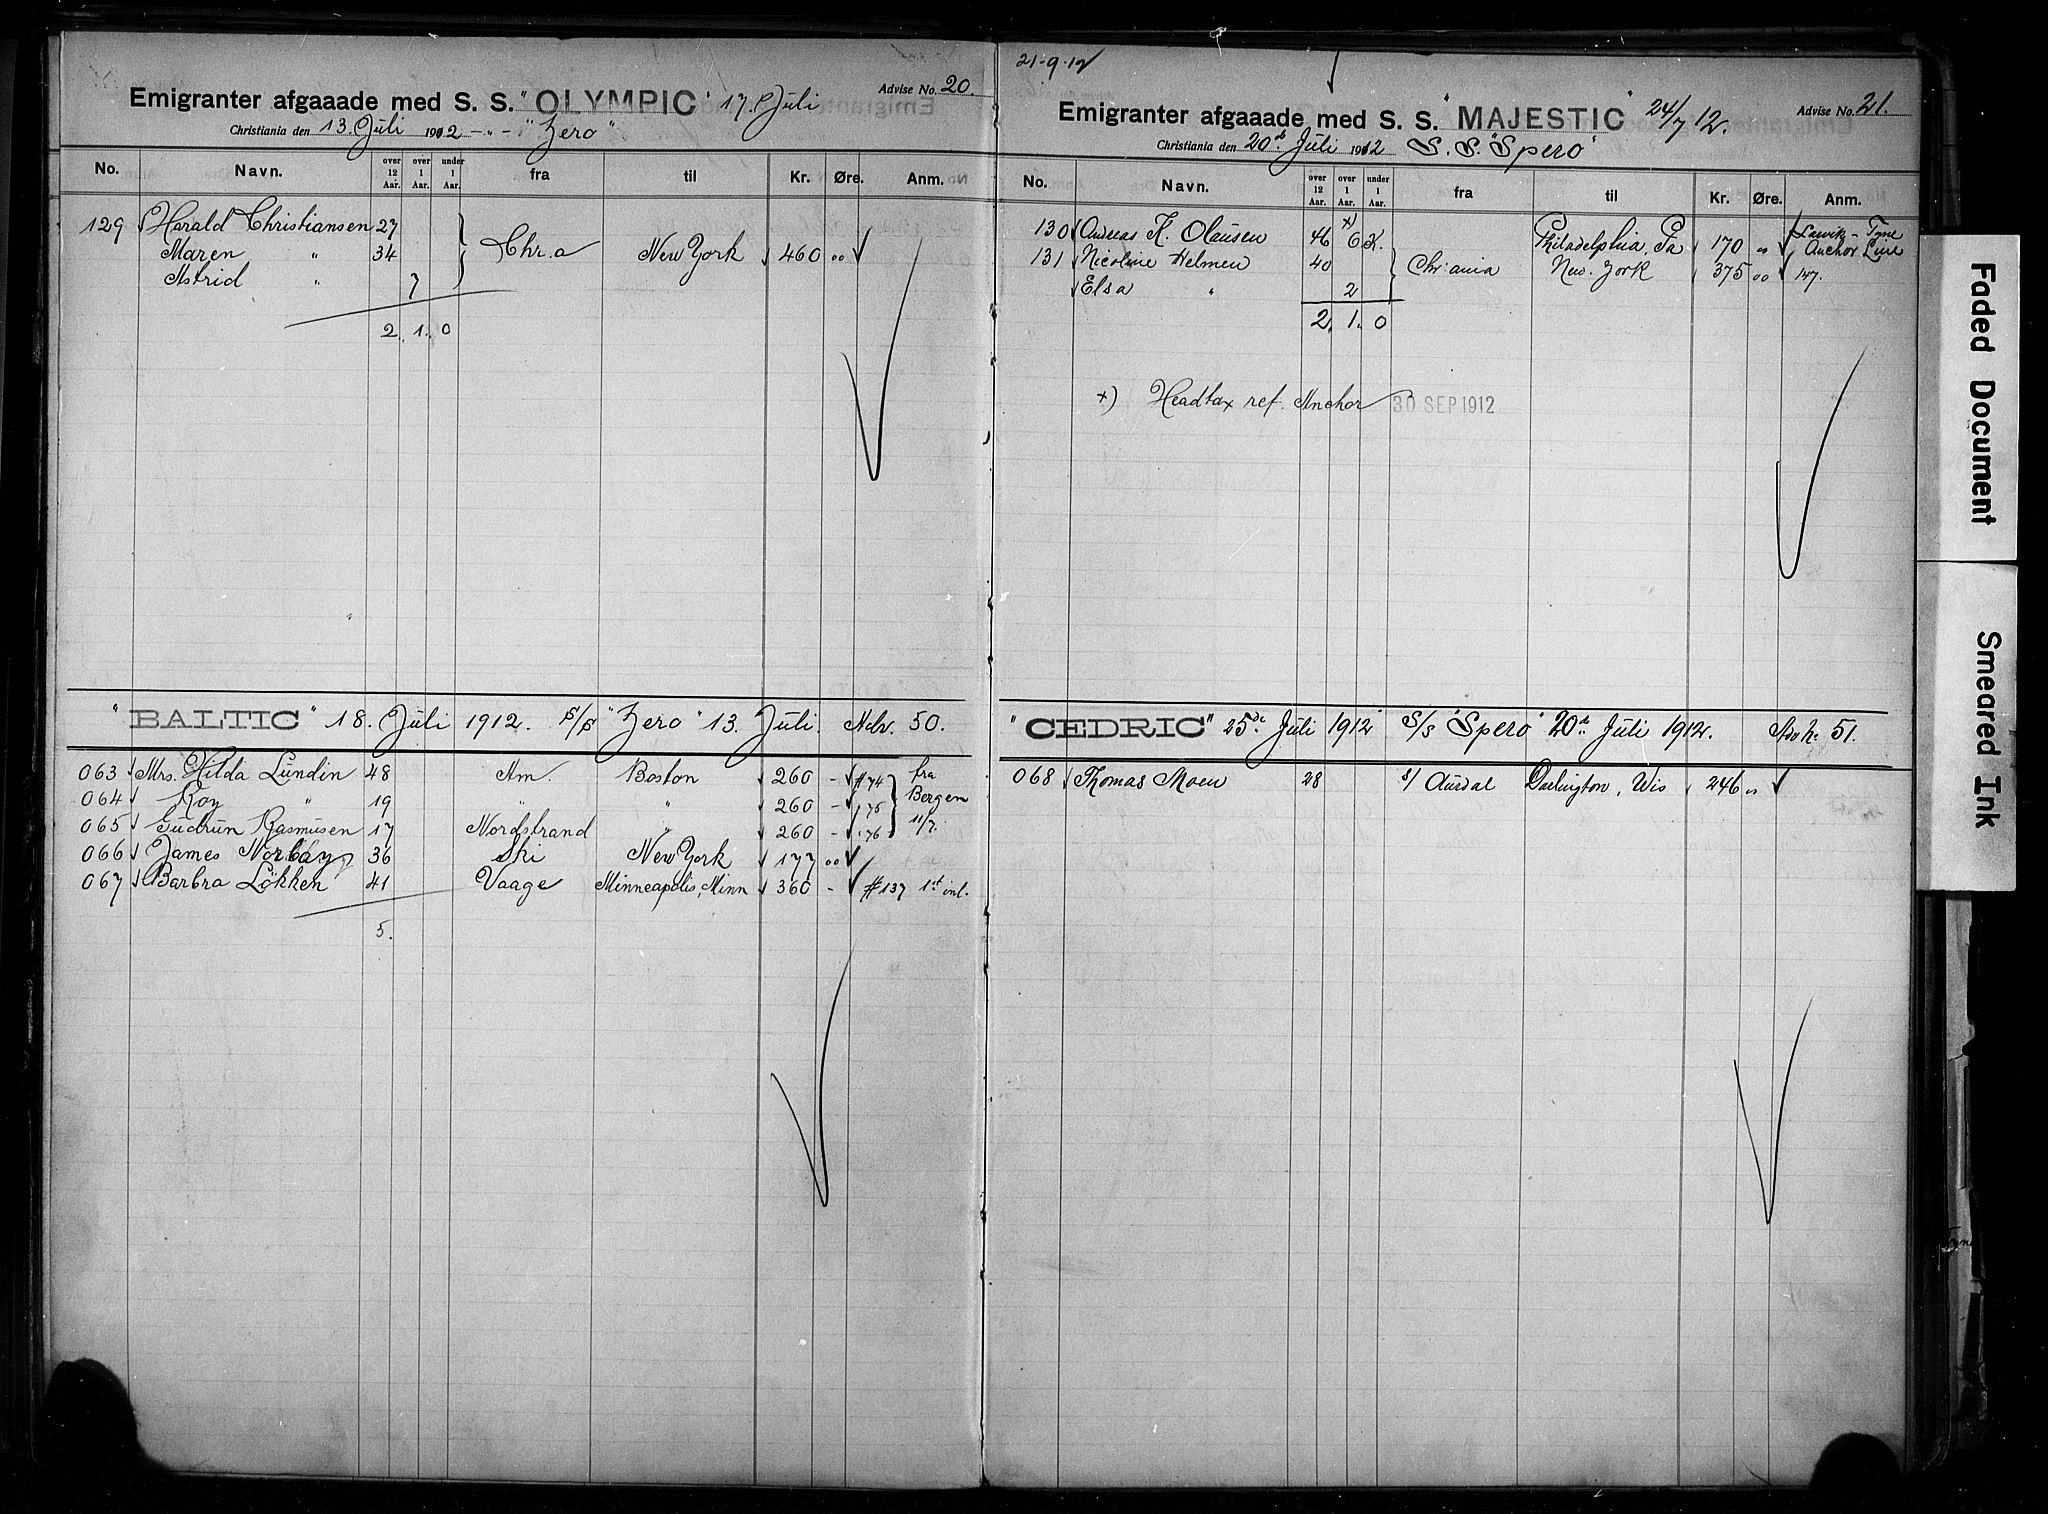 Emigranter afgaaade med S. S. "OLYMPIC" 17. Juli Advise No. 20.
Christiania den 13. Juli 1912 -"- "Zero"
No. Navn. over 12 Aar. over 1 Aar. under 1 Aar. fra til Kr. Øre. Anm.
129 Harald Christiansen 27
Maren " 34 Chr.a New York 460 00
Astrid " 7
2. 1. 0
"BALTIC" 18. Juli 1912. S/S "Zero" 13. Juli. Adv. 50.
063 Mrs. Hilda Lundin 48 Am. Boston 260 - #74 fra
064 Roy " 19 " " 260 - " 75 Bergen
065 Gudrun Rasmusen 17 Nordstrand " 260 - " 76 11/7.
066 James Norbay 36 Ski New York 177 00
067 Barbra Lökken 41 Vaage Minneapolis, Minn 360 - #137 1st inl.
5.
21-9-12
Emigranter afgaaade med S. S. "MAJESTIC" 24/7 12. Advise No. 21.
Christiania den 20de Juli 1912 S. S. "Spero"
No. Navn. over 12 Aar. over 1 Aar. under 1 Aar. fra til Kr. Øre. Anm.
130 Andreas K. Olausen 46 x) O.K. Philadelphia, Pa 170 " Larvik - Tyne Anchor Line
131 Nicoline Helmen 40 Chr:ania New York 375 00 147.
Elsa " 2
2. 1. 0
x) Headtax ref. Anchor 30 SEP 1912
"CEDRIC" 25de Juli 1912 S/S "Spero" 20de Juli 1912. Adv No. 51.
068 Thomas Moen 28 S/ Aurdal Darlington, Wis 246 "
Faded Document
Smeared Ink